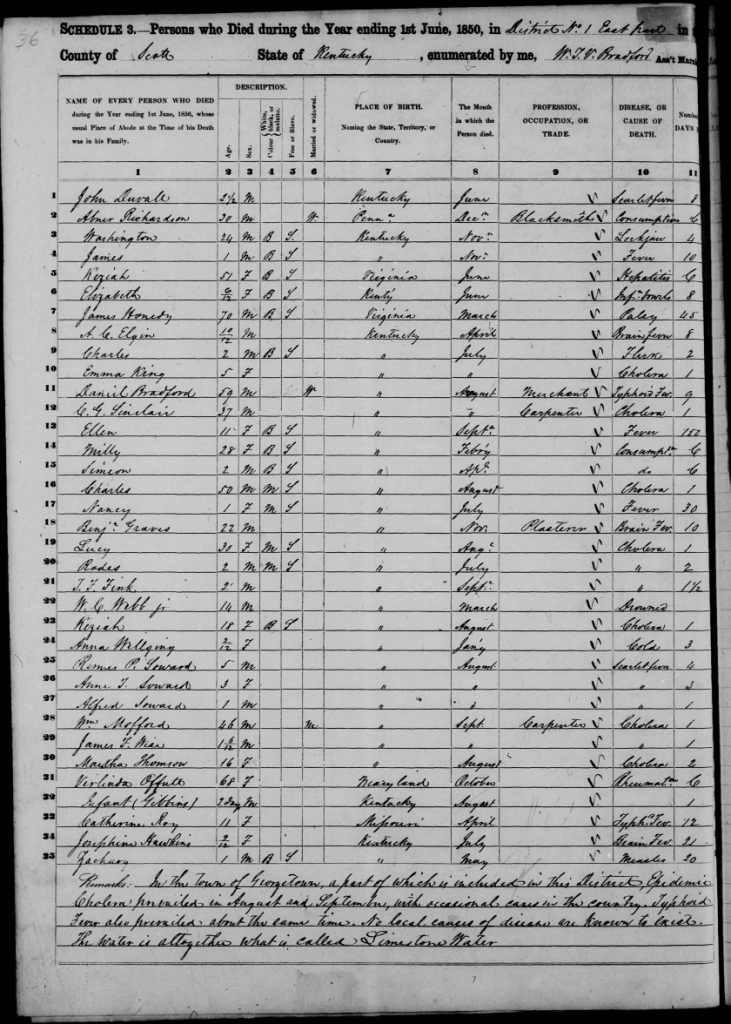 36
SCHEDULE 3.—Persons who Died during the Year ending 1st June, 1850, in District No. 1 East part in
County of Scott State of Kentucky, enumerated by me, W. T. V. Bradford Ass't Mars
NAME OF EVERY PERSON WHO DIED during the Year ending 1st June, 1850, whose usual Place of Abode at the Time of his Death was in his Family.
DESCRIPTION.
Age. Sex. Colour White, black, or mulatto. Free or Slave. Married or widowed.
PLACE OF BIRTH. Naming the State, Territory, or Country.
The Month in which the Person died.
PROFESSION, OCCUPATION, OR TRADE.
DISEASE, OR CAUSE OF DEATH.
DAYS
1 2 3 4 5 6 7 8 9 10 11
1 John Duvall 2 1/2 M Kentucky June Scarlet fever 8
2 Abner Richardson M W. Penna Decr Blacksmith Consumption C
3 Washington 24 M B S Kentucky Novr Lockjaw 4
4 James 1 M B S " Novr Fever 10
5 Keziah 51 F B S Virginia June Hepatitis C
6 Elizabeth F B S Kenty June Infn bowels 8
7 James 70 M B S Virginia March Palsy 45
8 A. C. Elgin 10/12 M Kentucky April Brain fever 8
9 Charles 2 M B S " July Flux 2
10 Emma King 5 F " " Cholera 1
11 Daniel Bradford 59 M W " August Merchant Typhoid Fev. 9
12 C. G. Sinclair 37 M " " Carpenter Cholera 1
13 Ellen 11 F B S " Septr Fever 150
14 Milly 28 F B S " Febry Consumptn C
15 Simeon 2 M B S " Apl. do C
16 Charles 50 M M S " August Cholera 1
17 Nancy 1 F M S " July Fever 30
18 Benjn Graves 22 M " Nov. Plasterer Brain Fev. 10
19 Lucy F M S " Augt Cholera 1
20 Rodes 2 M M S " July " 2
21 T. F. Fink 2 M " Septr " 1 1/2
22 W. C. Webb jr 14 M " March Drowned
23 Keziah 18 F B S " August Cholera 1
24 Anna 2/12 F " Jany Cold 3
25 P. Soward 5 M " August Scarlet fever 4
26 Anne T. Soward 3 F " " " 3
27 Alfred Soward 1 M " " " 1
28 Wm Mofford 46 M M " Sept. Carpenter Cholera 1
29 James F. M " " " 1
30 Martha Thomson 16 F " August Cholera 2
31 Verlinda Offutt 68 F Maryland October Rheumatm C
32 Infant (Gibbins) 2 day M Kentucky August 1
33 Catherine Roy 11 F Missouri April Typhd Fev. 12
34 Josephine Hawkins 2/12 F Kentucky July Brain Fev. 21
35 Zachary 1 M B S " May Measles 20
Remarks: In the town of Georgetown, a part of which is included in this District, Epidemic
Cholera prevailed in August and September, with occasional cases in the country. Typhoid
Fever also prevailed about the same time. No local causes of disease are known to exist.
The water is altogether what is called Limestone Water